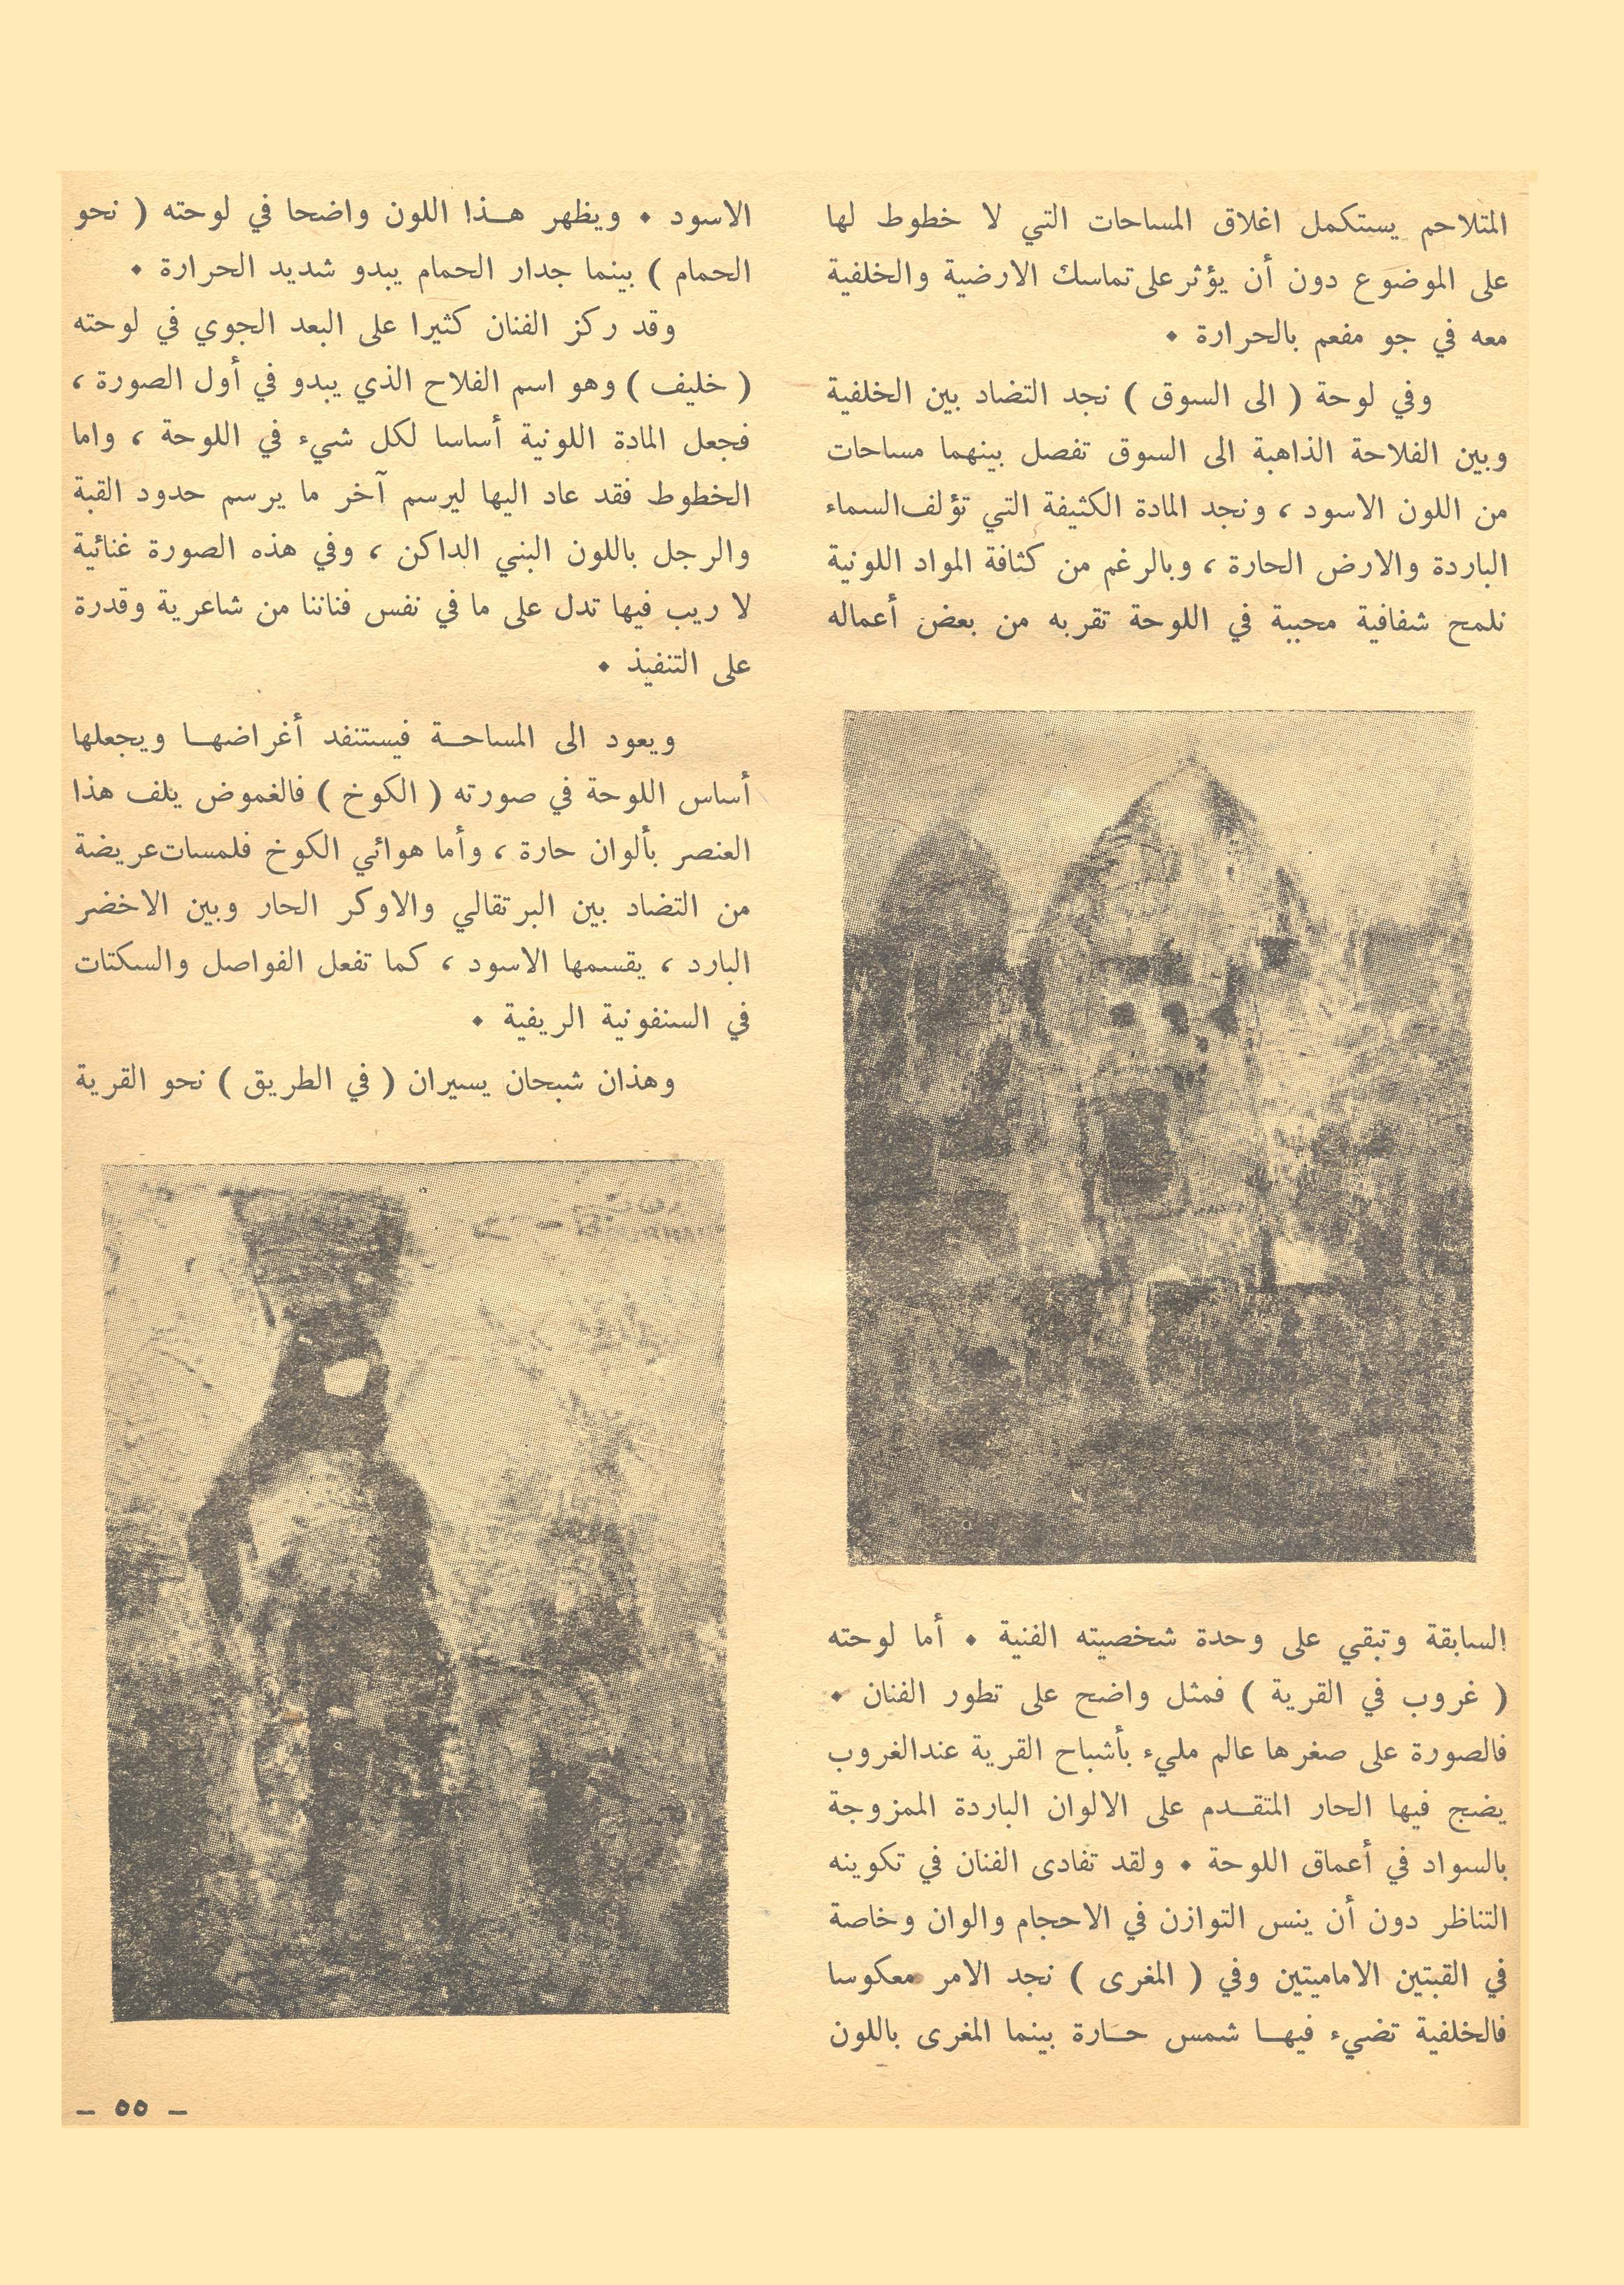 المتلاحم يستكمل اغلاق المساحات التي لا خطوط لها
على الموضوع دون أن يؤثر على تماسك الارضية والخلفية
معه في جو مفعم بالحرارة ٠
وفي لوحة ( الى السوق ) نجد التضاد بين الخلفية
وبين الفلاحة الذاهبة الى السوق تفصل بينهما مساحات
من اللون الاسود ، ونجد المادة الكثيفة التي تؤلف السماء
الباردة والارض الحارة ، وبالرغم من كثافة المواد اللونية
نلمح شفافية محببة في اللوحة تقربه من بعض أعماله
السابقة وتبقي على وحدة شخصيته الفنية ٠ أما لوحته
( غروب في القرية ) فمثل واضح على تطور الفنان ٠
فالصورة على صغرها عالم مليء بأشباح القرية عند الغروب
يضج فيها الحار المتقـدم على الالوان الباردة الممزوجة
بالسواد في أعماق اللوحة ٠ ولقد تفادى الفنان في تكوينه
التناظر دون أن ينس التوازن في الاحجام والوان وخاصة
في القبتين الاماميتين وفي ( المغرى ) نجد الامر معكوسا
فالخلفية تضيء فيهـا شمس حـارة بينما المغرى باللون
الاسود ٠ ويظهر هـذا اللون واضحا في لوحته ( نحو
الحمام ) بينما جدار الحمام يبدو شديد الحرارة ٠
وقد ركز الفنان كثيرا على البعد الجوي في لوحته
( خليف ) وهو اسم الفلاح الذي يبدو في أول الصورة ،
فجعل المادة اللونية أساسا لكل شيء في اللوحة ، واما
الخطوط فقد عاد اليها ليرسم آخر ما يرسم حدود القبة
والرجل باللون البني الداكن ، وفي هذه الصورة غنائية
لا ريب فيها تدل على ما في نفس فناننا من شاعرية وقدرة
على التنفيذ ٠
ويعود الى المساحـة فيستنفد أغراضهـا ويجعلها
أساس اللوحة في صورته ( الكوخ ) فالغموض يلف هذا
العنصر بألوان حارة ، وأما هوائي الكوخ فلمسات عريضة
من التضاد بين البرتقالي والاوكر الحار وبين الاخضر
البارد ، يقسمها الاسود ، كما تفعل الفواصل والسكتات
في السنفونية الريفية ٠
وهذان شبحان يسيران ( في الطريق ) نحو القرية
– ٥٥ –